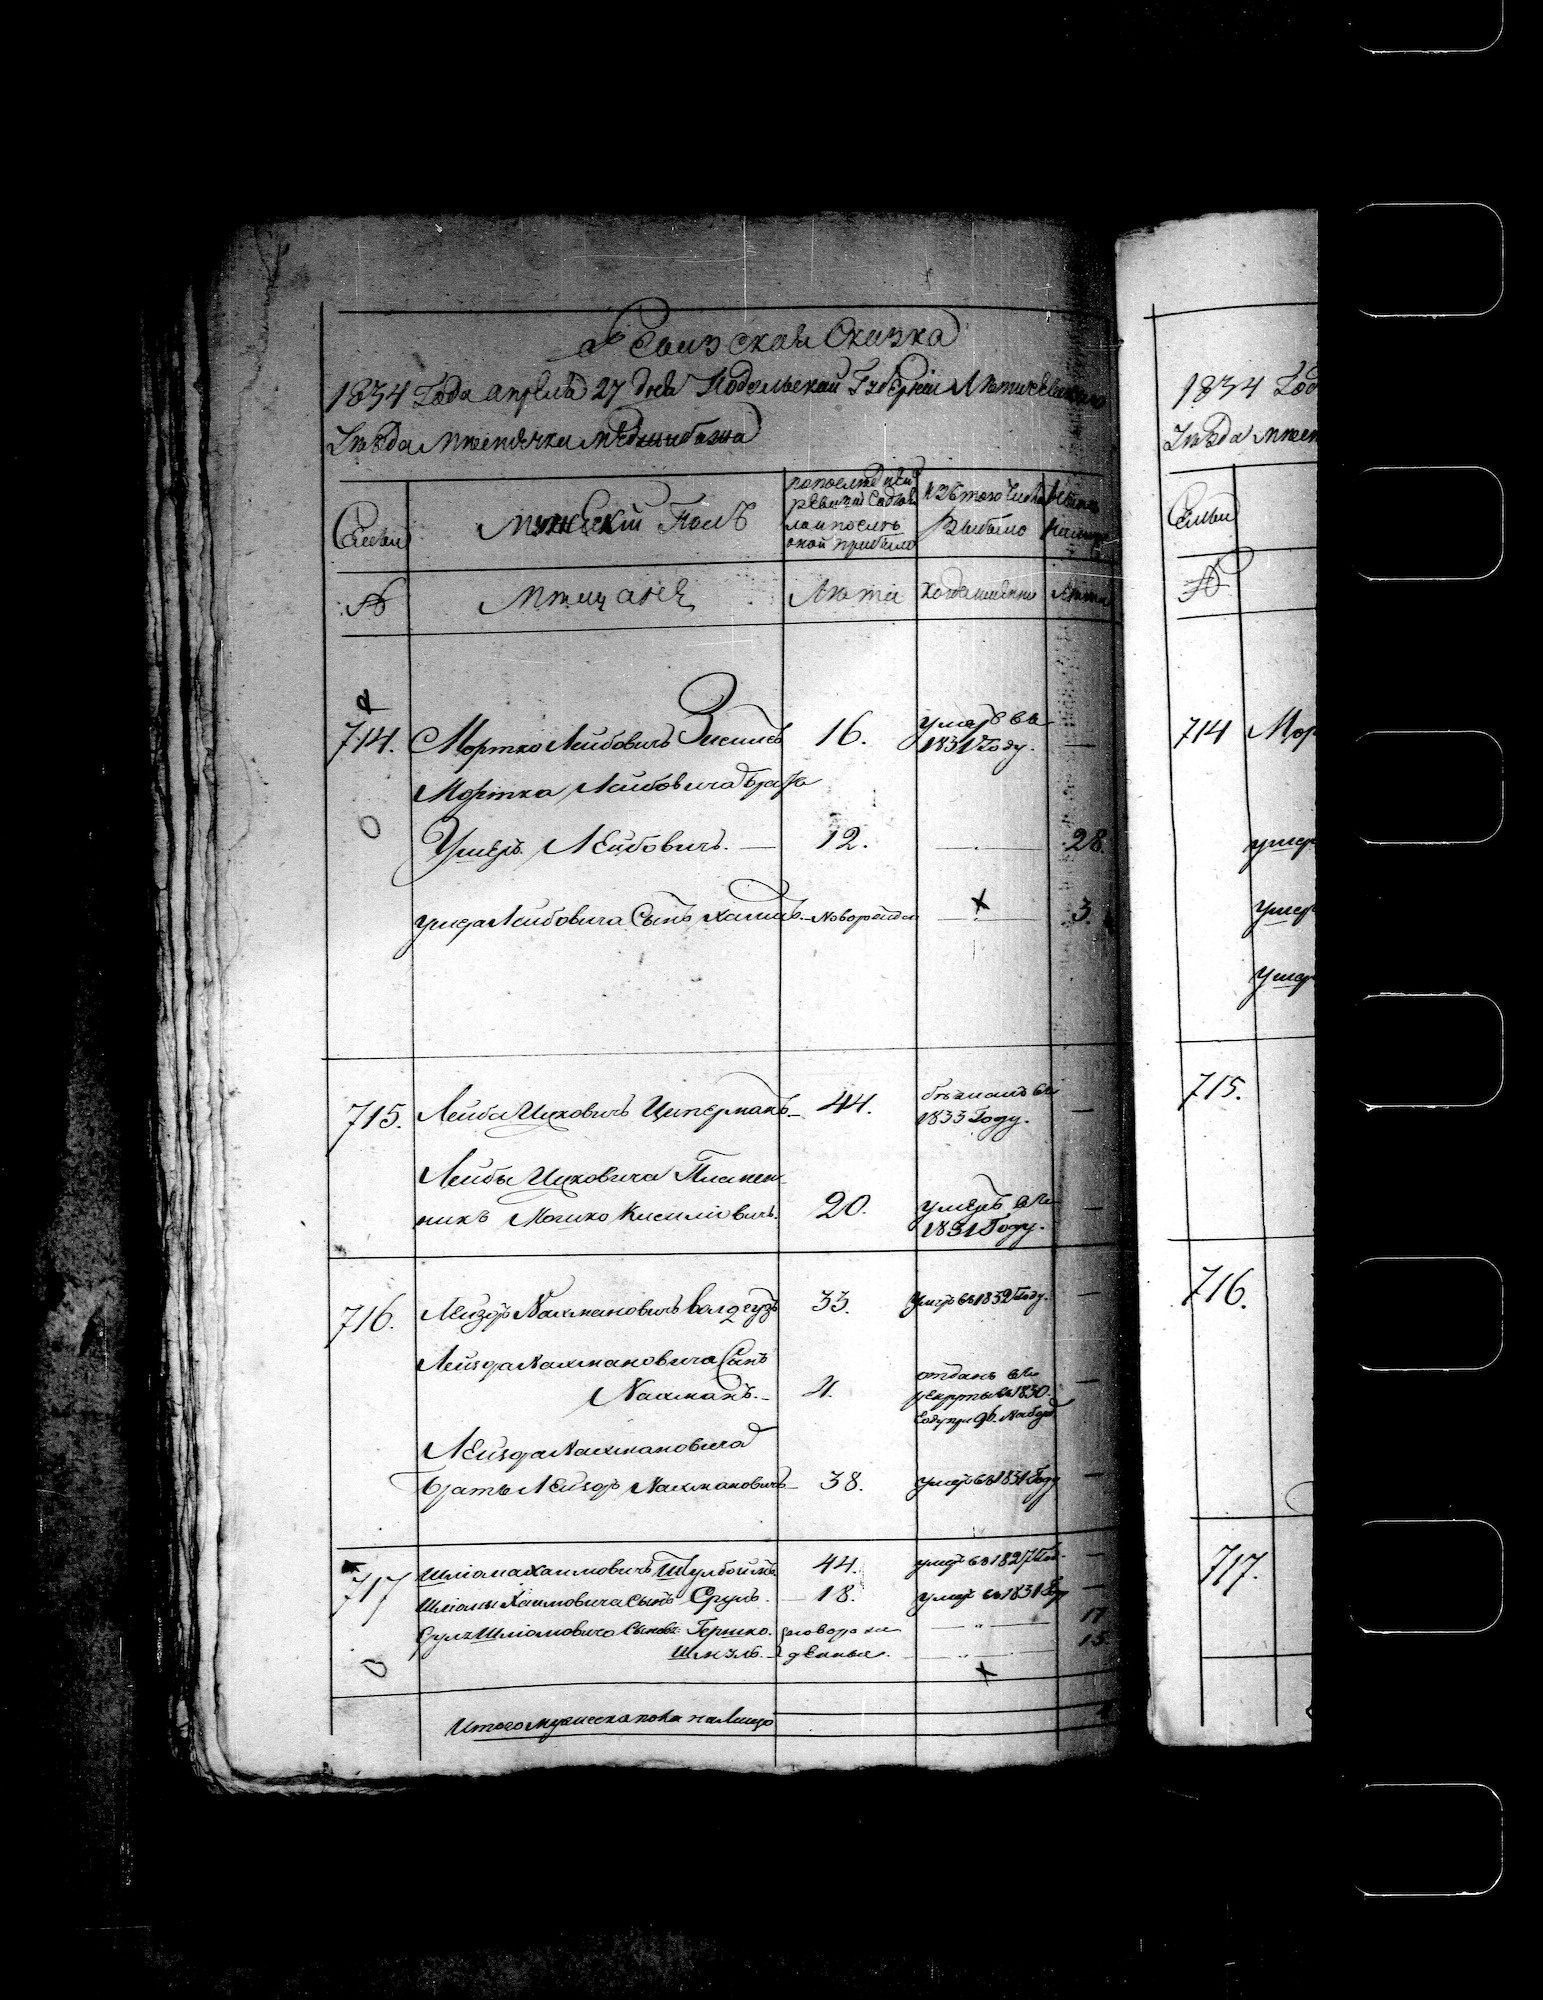 Ревизская Сказка
1834 Года апреля 27 дня Подольской Губернии Летичевскаго
Уезда местечка Меджибожа
Семьи
Мужескій Полъ
по последней
ревизіи состоя
ло и после
оной прибыло
Изъ того числа
Выбыло
Ныне
на лицо
№
Мещане
Лета
Когда именно
Лета
714. Мортко Лейбовичъ 16. умеръ въ
1831 Году. —
Мортка Лейбовича братъ
Умеръ Лейбовичъ. — 12. — 28.
умера Лейбовича Сынъ Хаимъ — Новорожден — 3.
715. Лейба Ицковичъ Циперманъ — 44. бежалъ въ
1833 Году. —
Лейбы Ицковича Племен-
никъ Мошко Кисиліовичъ. 20. умеръ въ
1831 Году. —
716. Лейзоръ Нахмановичъ 33. умеръ въ 1832 Году. —
Лейзора Нахмановича Сынъ
Нахманъ. — отданъ въ
рекруты въ 1830.
Году при 96. Наборе —
Лейзора Нахмановича
Братъ Лейзоръ Нахмановичъ — 38. умеръ въ 1831 Году —
717 Шліома Хаимовичъ 44. умеръ въ 1827 Год. —
Шліомы Хаимовича сынъ Сруль. — 18. умеръ въ 1831 Году —
Сруля Шліомовича Сыновья: Гершко. новоро — 17
Шмуль. — жденые. — 15
Итого мужеска пола на лицо
1834 Год
Уезда мест
Семьи
№
714 Мор
умер
умер
умер
715.
716.
717.